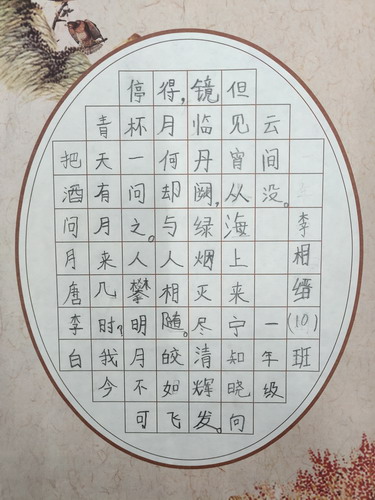 把酒问月唐李白
青天有月来几时?我今
停杯一问之。人攀明月不可
得,月何却与人相随。皎如飞
镜临丹阙,绿烟灭尽清辉发。
但见宵从海上来宁知晓向
云间没。
一年级
李相缙(10)班